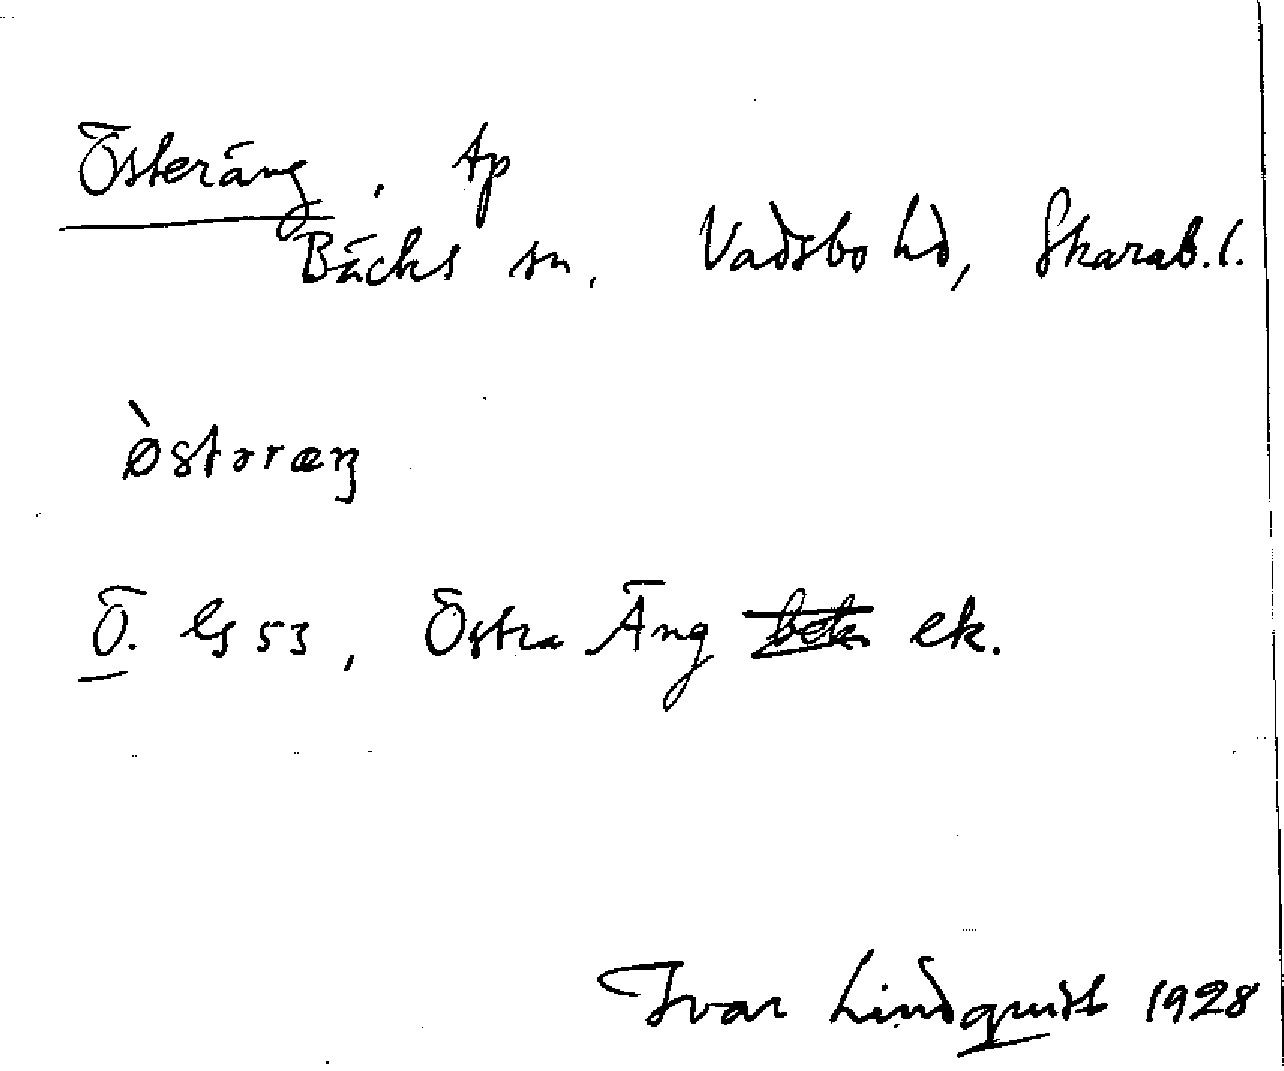 Österäng, tp
Bäcks sn. Vadsbo hd, Skarab. l.
òstəræŋ
Ö. GS 53, Östra Äng ek.
Ivar Lindquist 1928